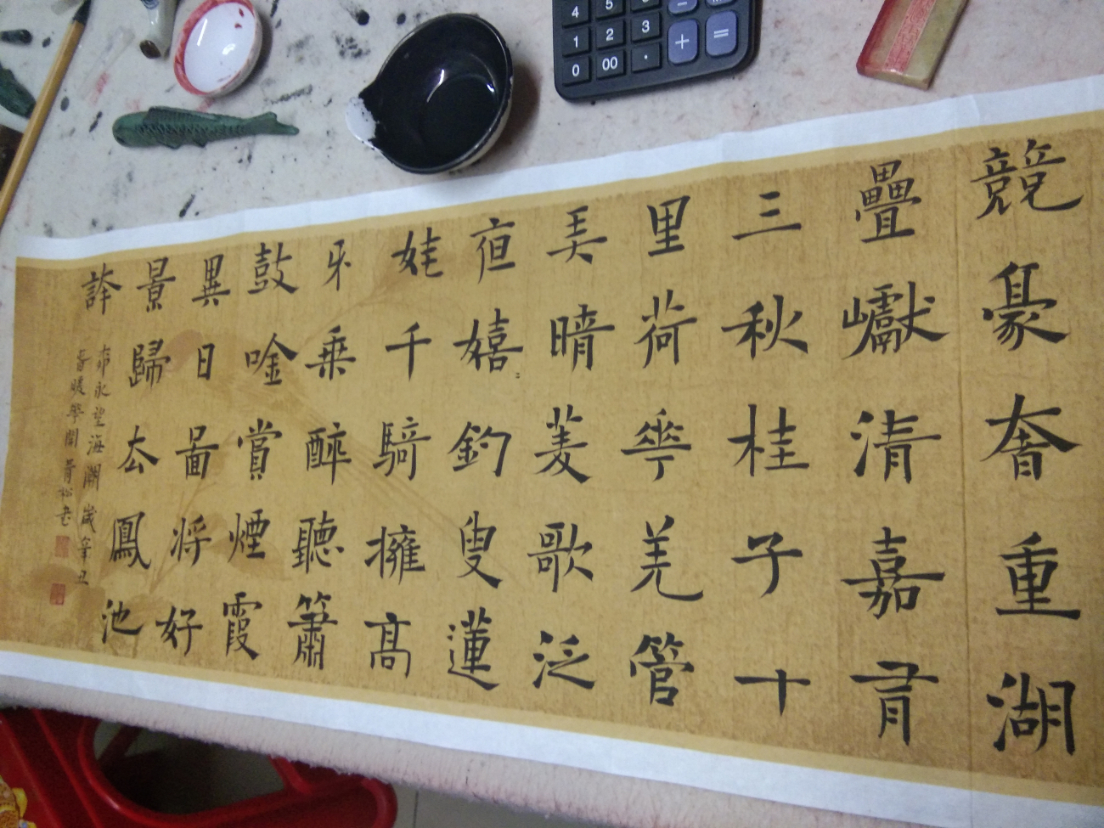 競豪奢重湖
疊巘清嘉有
三秋桂子十
里荷華羌管
弄晴菱歌泛
亱嬉〻釣叟蓮
娃千騎擁高
牙乘醉聽簫
鼓唫賞煙霞
異日啚將好
景歸去鳳池
誇
柳永望海潮 歲辛丑
春暖
4 5
1 2 3
0 00 ·
+ =